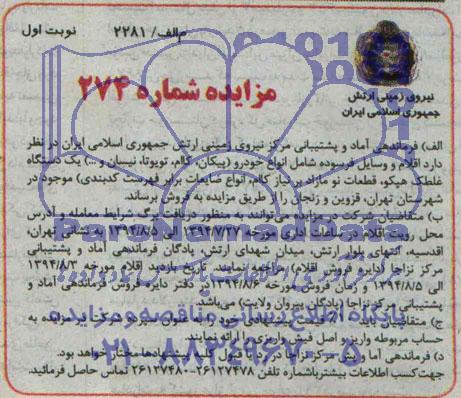 م‌الف/ ۲۲۸۱
نوبت اول
نیروی زمینی ارتش
جمهوری اسلامی ایران
مزایده شماره ۲۷۴
الف) فرماندهی آماد و پشتیبانی مرکز نیروی زمینی ارتش جمهوری اسلامی ایران در نظر
دارد اقلام و وسایل فرسوده شامل انواع خودرو (پیکان، کاام، تویوتا، نیسان و ...) یک دستگاه
غلطک هپکو، قطعات نو مازاد بر نیاز کاام، انواع ضایعات برابر فهرست کدبندی) موجود در
شهرستان تهران، قزوین و زنجان را از طریق مزایده به فروش برساند.
ب) متقاضیان شرکت در مزایده می‌توانند به منظور دریافت برگ شرایط معامله و آدرس
محل رویت اقلام در ساعات اداری مورخه ۱۳۹۴/۷/۲۷ الی ۱۳۹۴/۸/۵ به نشانی تهران،
اقدسیه، انتهای بلوار ارتش، میدان شهدای ارتش، پادگان فرماندهی آماد و پشتیبانی
مرکز نزاجا (دایره فروش اقلام) مراجعه نمایند. تاریخ بازدید اقلام مورخه ۱۳۹۴/۸/۲
الی ۱۳۹۴/۸/۵ و زمان فروش مورخه ۱۳۹۴/۸/۶ در دفتر دایره فروش فرماندهی آماد و
پشتیبانی مرکز نزاجا (پادگان پیروان ولایت) می‌باشد.
ج) متقاضیان باید قیمت پیشنهادی خود را به عنوان سپرده شرکت در مزایده به
حساب مربوطه واریز و اصل فیش واریزی را ارائه نمایند.
د) فرماندهی آماد و پش مرکز نزاجا در رد یا قبول کلیه پیشنهادها مختار خواهد بود.
جهت کسب اطلاعات بیشتر با شماره تلفن ۲۶۱۲۷۴۷۸-۲۶۱۲۷۴۸۰ تماس حاصل فرمائید.
ParsNamadData
پایگاه اطلاع رسانی مناقصه و مزایده
۰۲۱-۸۸۳۴۹۶۷۰-۵